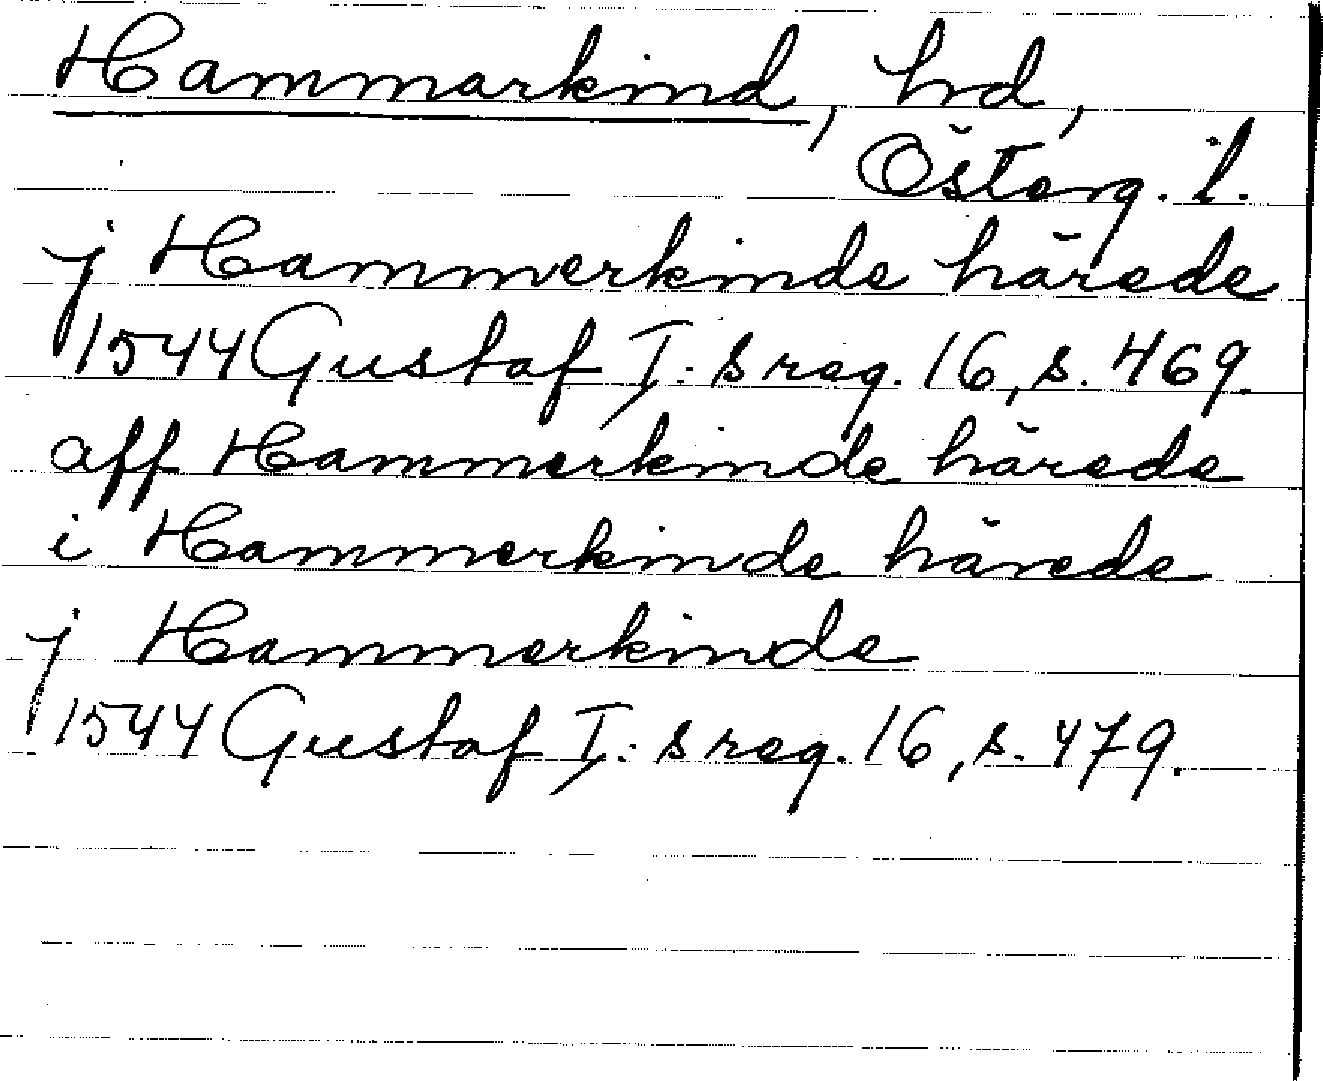 Hammarkind, hd,
Österg. l.
j Hammerkinde härede
1544 Gustaf I:s reg. 16, s. 469.
aff Hammerkinde härede
i Hammerkinde härede
j Hammerkinde
1544 Gustaf I:s reg. 16, s. 479.